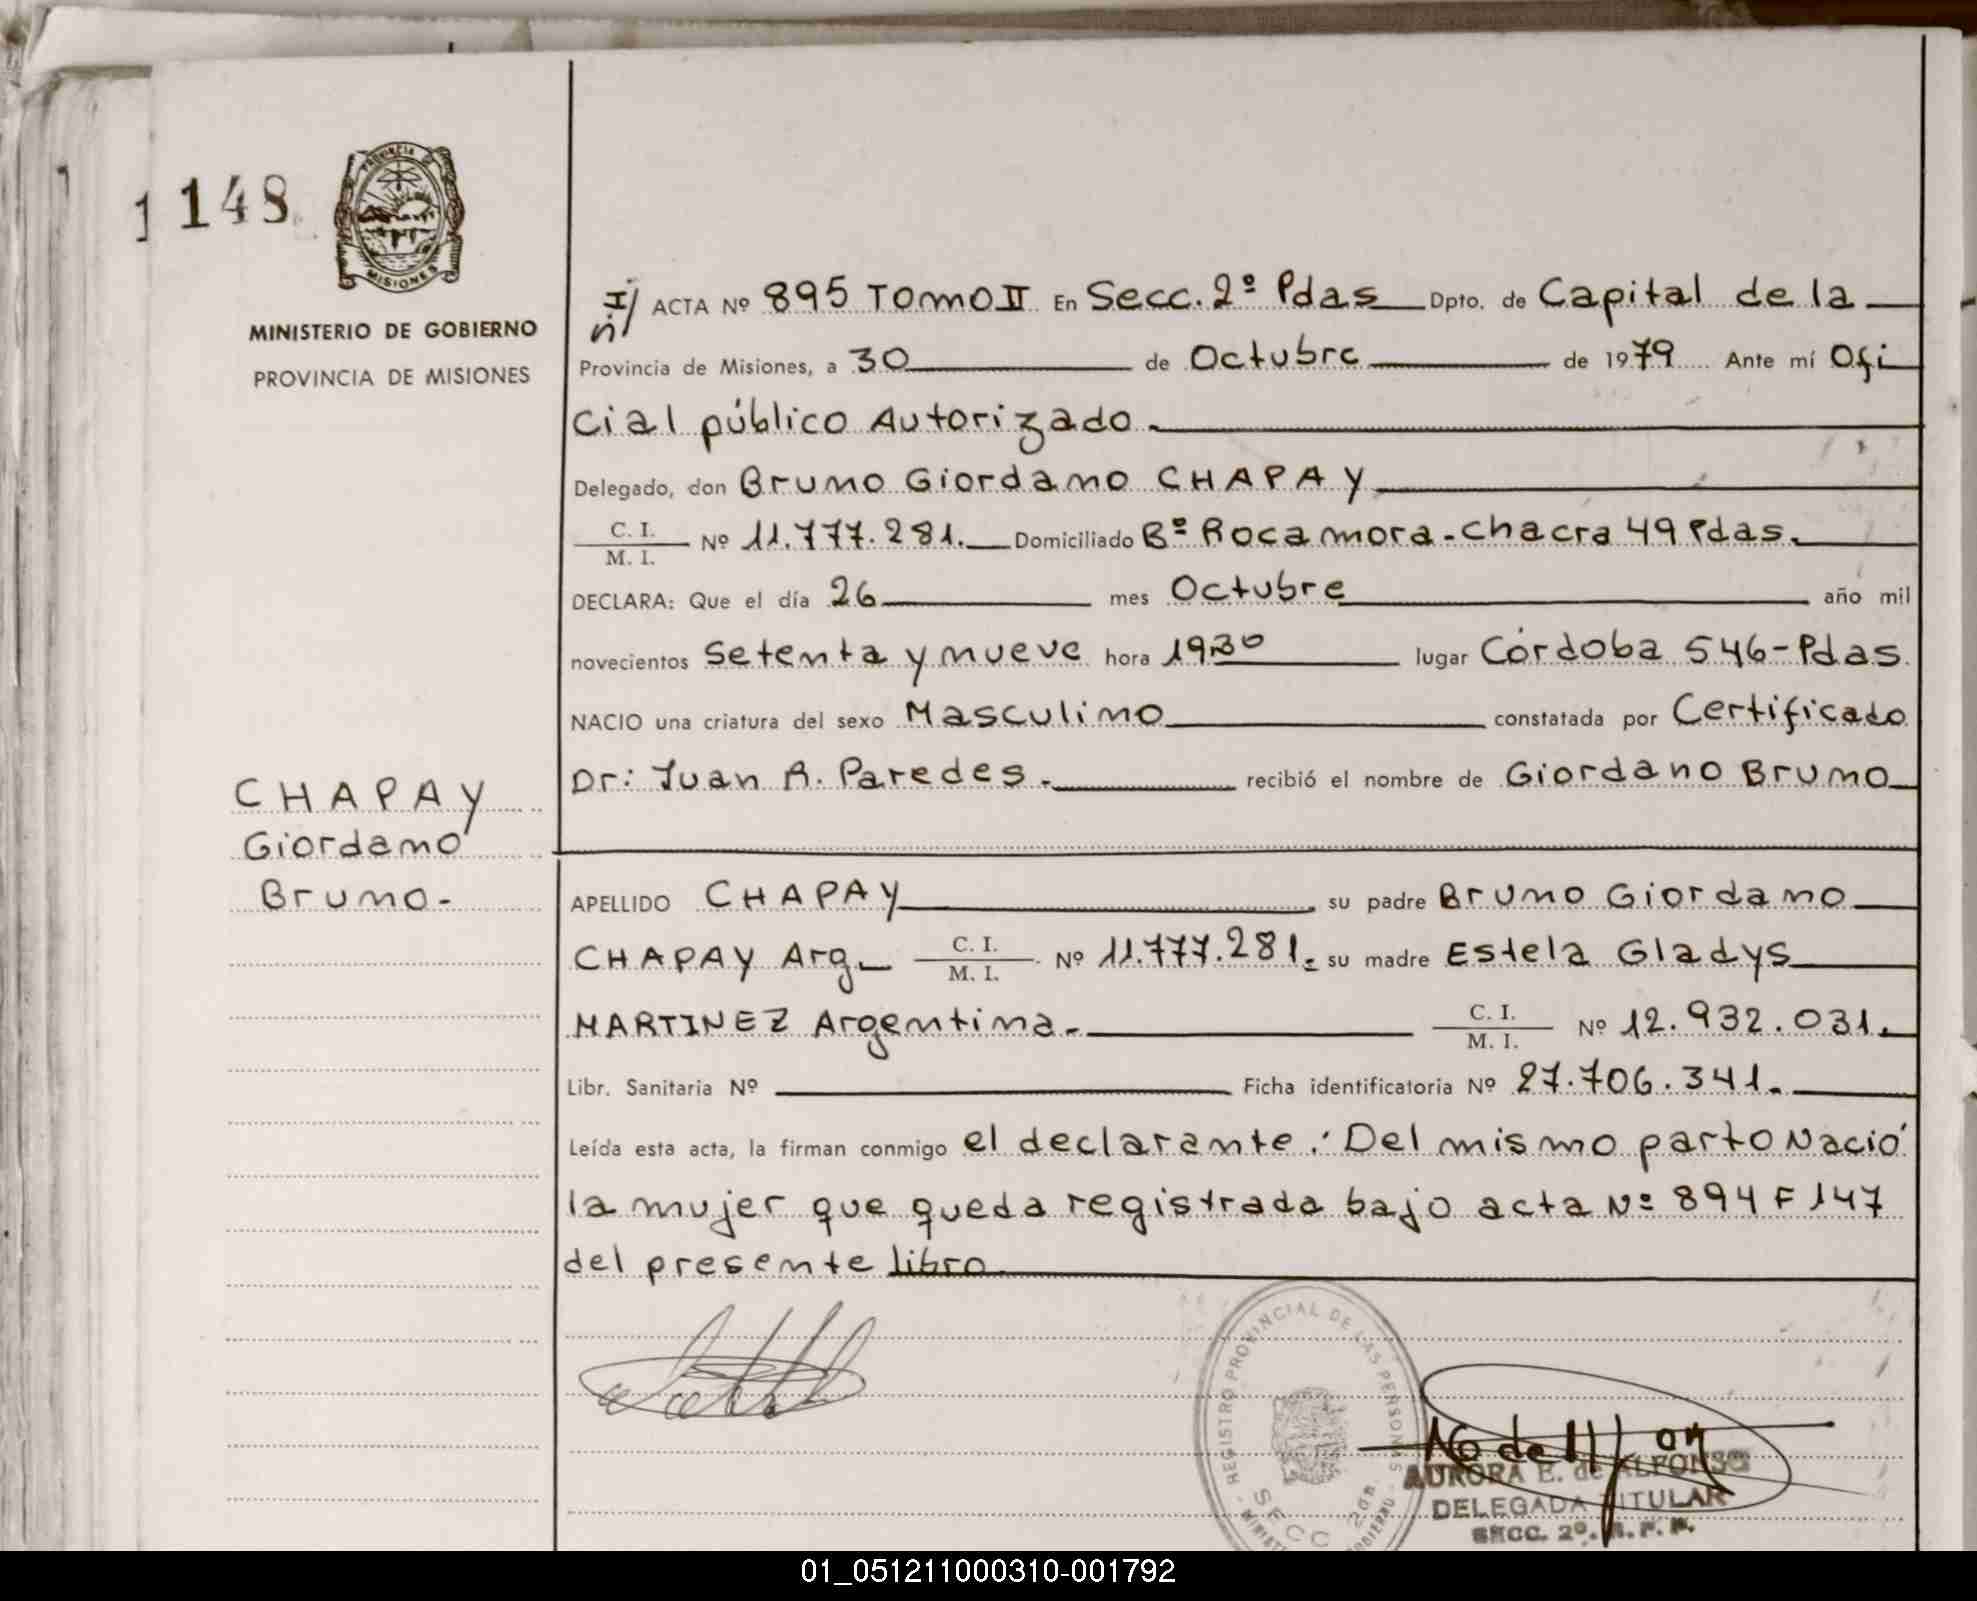 1 148
PROVINCIA DE
MISIONES
MINISTERIO DE GOBIERNO
PROVINCIA DE MISIONES
I/ ACTA Nº 895 Tomo II En Secc. 2º Pdas Dpto. de Capital de la
ñ/
Provincia de Misiones, a 30 de Octubre de 1979 Ante mí Ofi
cial público Autorizado.
Delegado, don Bruno Giordano CHAPAY
C. I.
M. I. Nº 11.777.281. Domiciliado Bº Rocamora - Chacra 49 Pdas.
DECLARA: Que el día 26 mes Octubre año mil
novecientos Setenta y nueve hora 1930 lugar Córdoba 546-Pdas
NACIO una criatura del sexo Masculino constatada por Certificado
Dr: Juan A. Paredes. recibió el nombre de Giordano Bruno
CHAPAY
Giordano
Bruno-
APELLIDO CHAPAY su padre Bruno Giordano
CHAPAY Arg C. I.
M. I. Nº 11.777.281. su madre Estela Gladys
MARTINEZ Argentina. C. I.
M. I. Nº 12.932.031.
Libr. Sanitaria Nº Ficha identificatoria Nº 27.706.341.
Leída esta acta, la firman conmigo el declarante: Del mismo parto Nació
la mujer que queda registrada bajo acta Nº 894 F 147
del presente libro
REGISTRO PROVINCIAL DE LAS PERSONAS
SECC 2da.
AURORA E. de ALFONSO
DELEGADA TITULAR
SECC. 2º. R. P. P.
01_051211000310-001792